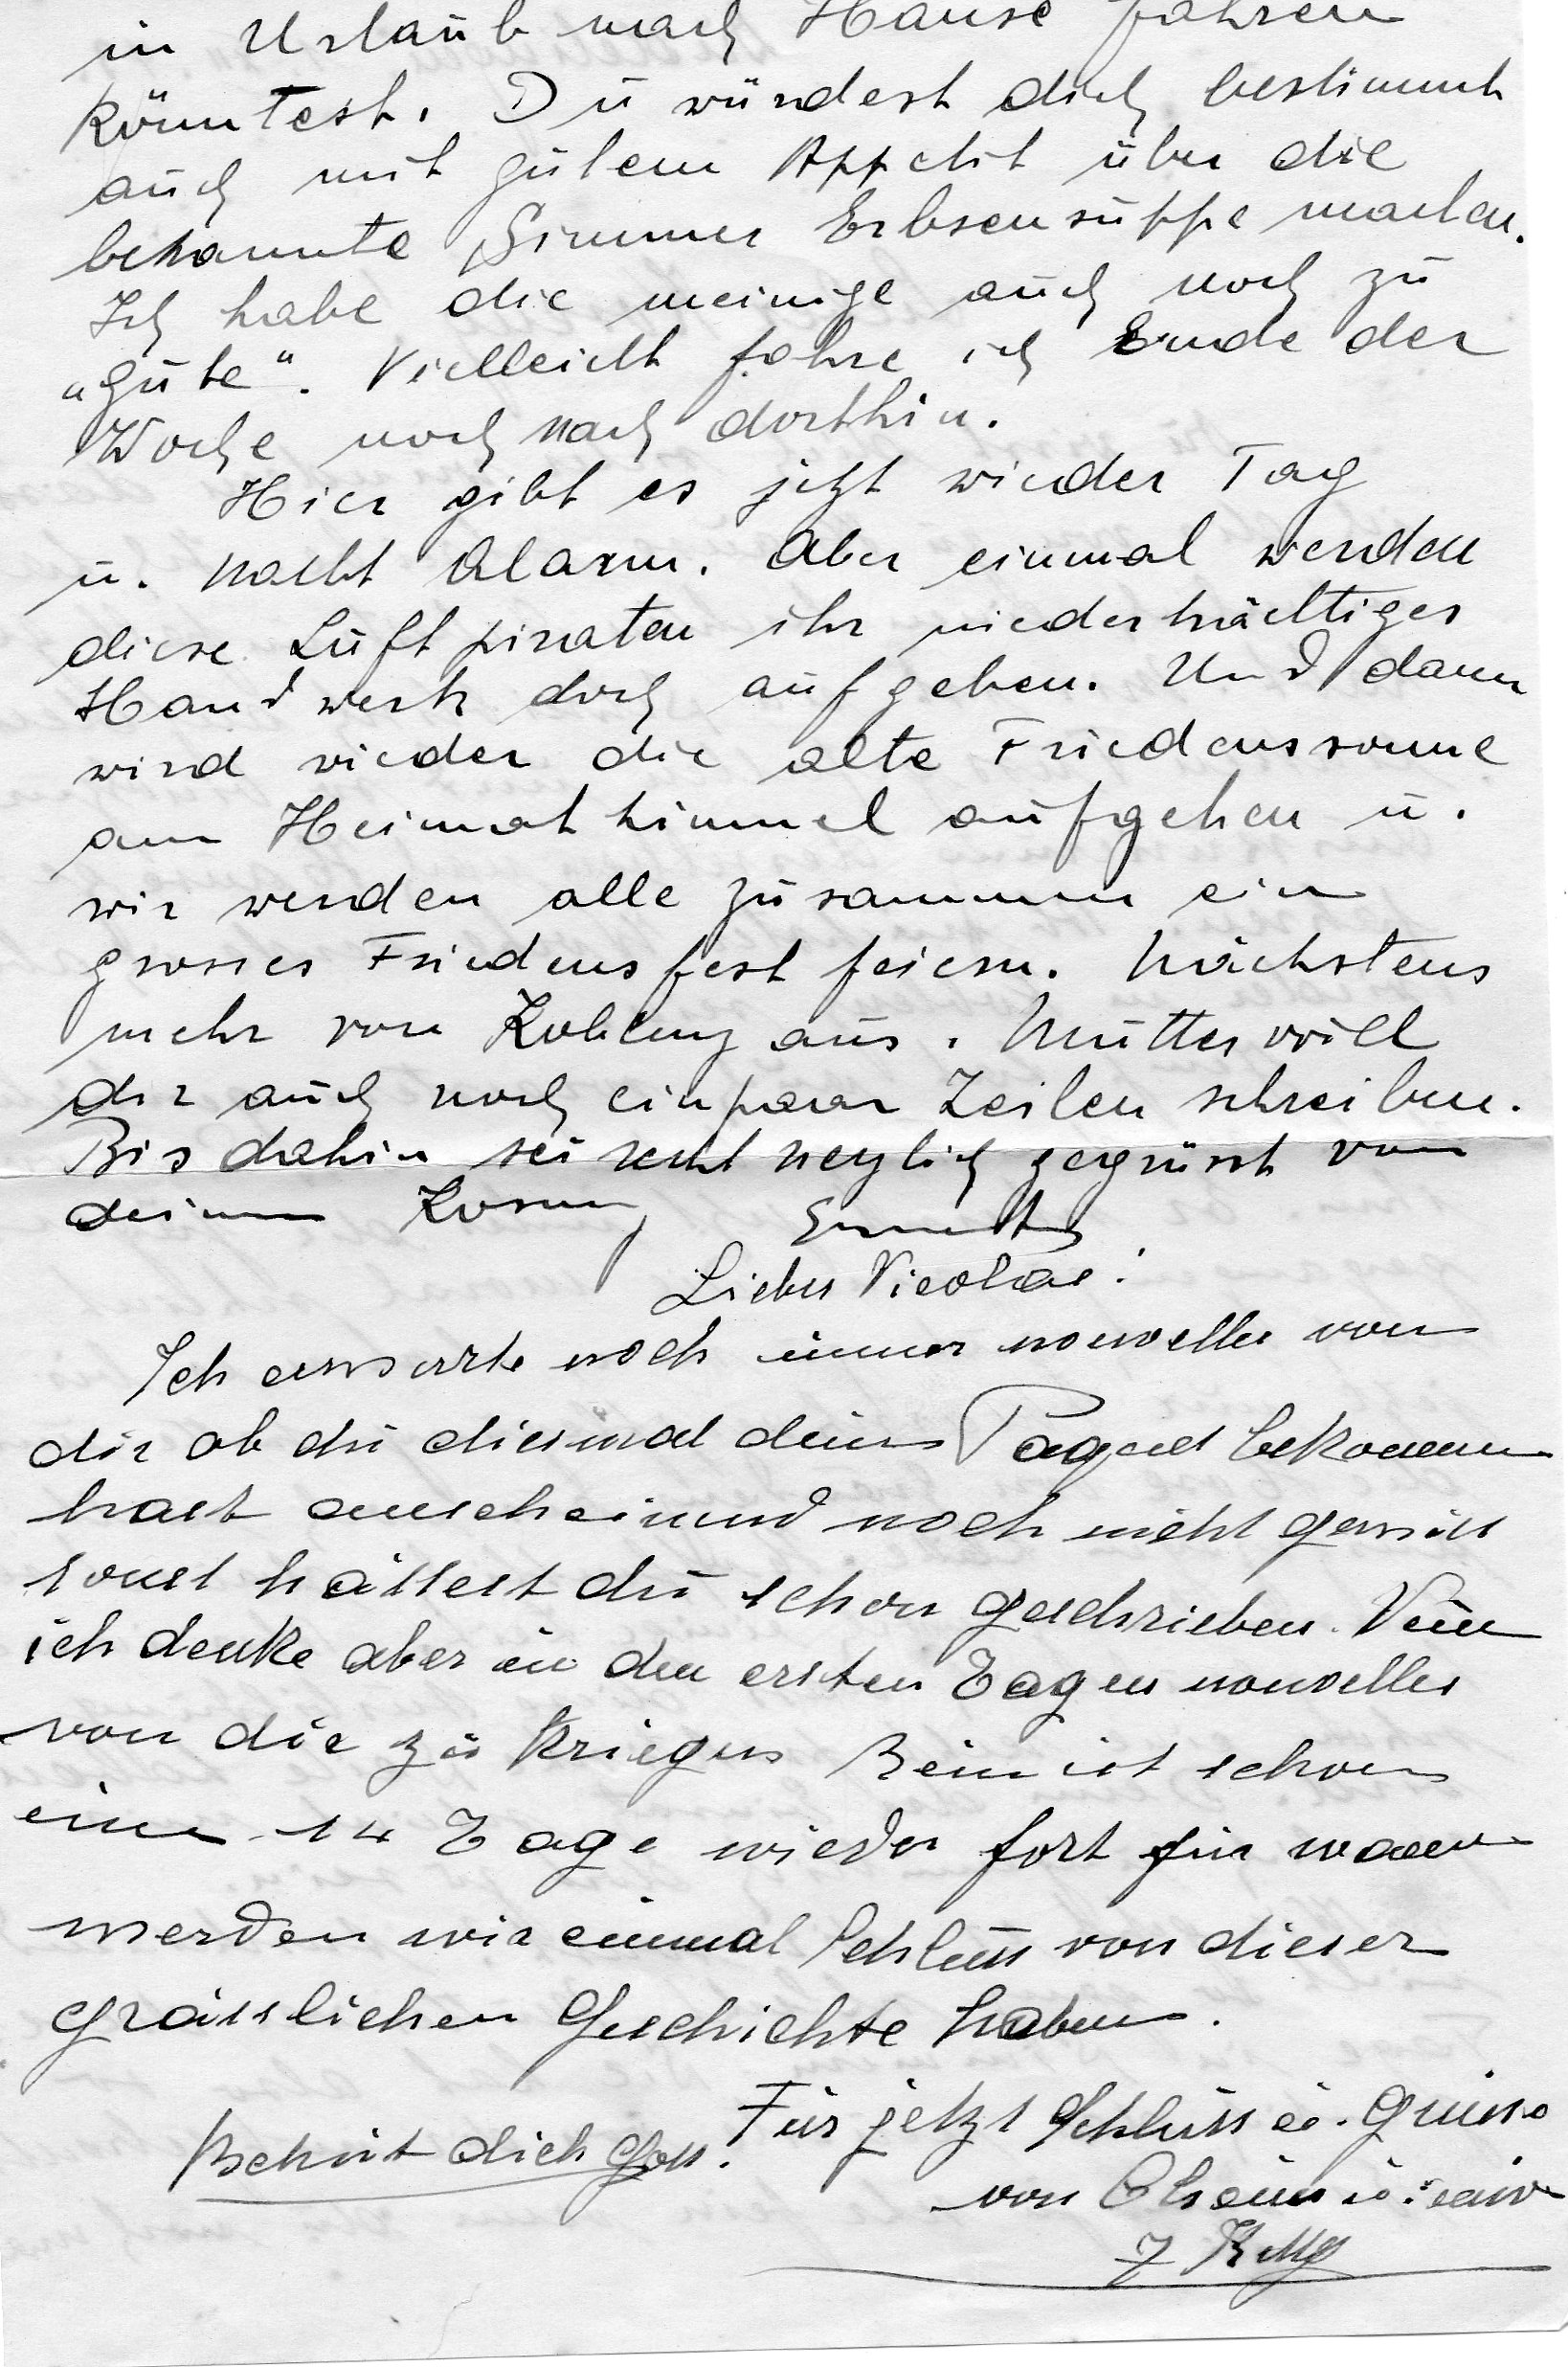 in Urlaub nach Hause fahren
könntest. Du würdest dich bestimmt
auch mit gutem Appetit über die
bekannte Simmer Erbsensuppe machen.
Ich habe die meinige auch noch zu
"gute". Vielleicht fahre ich Ende der
Woche noch nach dorthin.
Hier gibt es jetzt wieder Tag
u. Nacht Alarm. Aber einmal werden
diese Luftpiraten ihr niederträchtiges
Handwerk doch aufgeben. Und dann
wird wieder die alte Friedenssonne
am Heimathimmel aufgehen u.
wir werden alle zusammen ein
grosses Friedensfest feiern. Nächstens
mehr von Koblenz aus. Mutter will
dir auch noch ein paar Zeilen schreiben.
Bis dahin sei recht herzlich gegrüsst von
deinem Ernest
Lieber Nicolas!
Ich erwarte noch immer nouvelles von
dir ob du diesmal deine bekommen
hast anscheinend noch nicht
sonst hättest du schon geschrieben.
ich denke aber in den ersten Tagen nouvelles
von die zu kriegen ist schon
eine 14 Tage wieder fort für wann
werden wir einmal Schluss von dieser
grässlichen Geschichte haben.
Für jetzt Schluss u.
Behüt dich Gott.
von